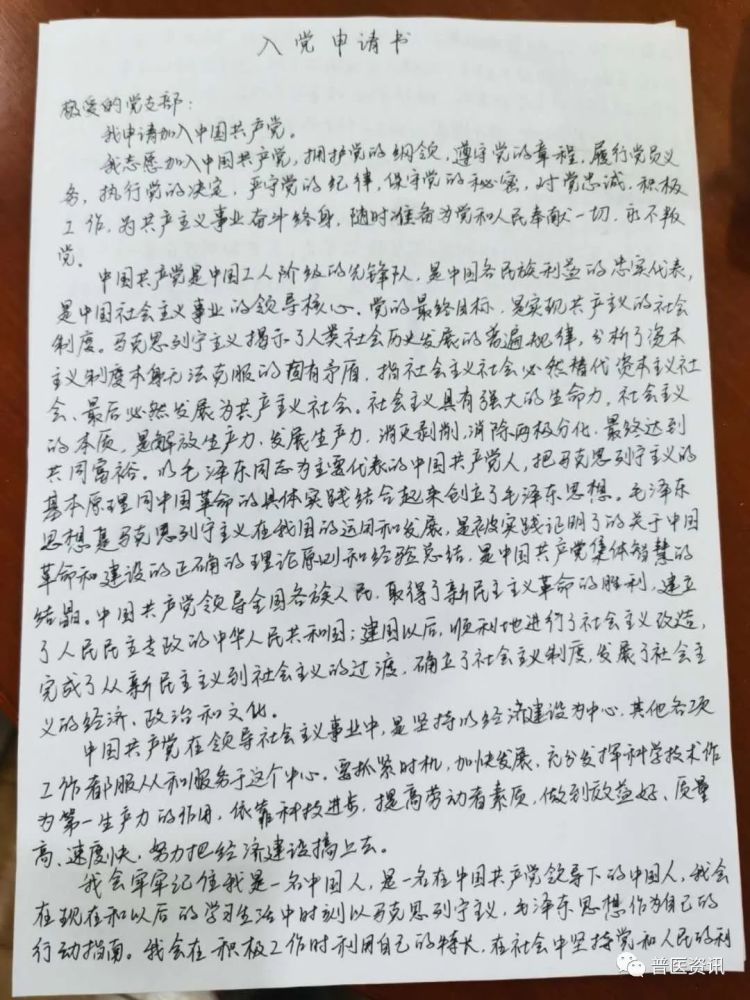 入党申请书
敬爱的党支部：
我申请加入中国共产党。
我志愿加入中国共产党，拥护党的纲领，遵守党的章程，履行党员义
务，执行党的决定，严守党的纪律，保守党的秘密，对党忠诚，积极
工作，为共产主义事业奋斗终身，随时准备为党和人民奉献一切，永不叛
党。
中国共产党是中国工人阶级的先锋队，是中国各民族利益的忠实代表，
是中国社会主义事业的领导核心。党的最终目标，是实现共产主义的社会
制度。马克思列宁主义揭示了人类社会历史发展的普遍规律，分析了资本
主义制度本身无法克服的固有矛盾，指社会主义社会必然替代资本主义社
会、最后必然发展为共产主义社会。社会主义具有强大的生命力，社会主义
的本质，是解放生产力，发展生产力，消灭剥削，消除两极分化，最终达到
共同富裕。以毛泽东同志为主要代表的中国共产党人，把马克思列宁主义的
基本原理同中国革命的具体实践结合起来创立了毛泽东思想。毛泽东
思想是马克思列宁主义在我国的运用和发展，是被实践证明了的关于中国
革命和建设的正确的理论原则和经验总结，是中国共产党集体智慧的
结晶。中国共产党领导全国各族人民，取得了新民主主义革命的胜利，建立
了人民民主专政的中华人民共和国；建国以后，顺利地进行了社会主义改造，
完成了从新民主主义到社会主义的过渡，确立了社会主义制度，发展了社会主
义的经济、政治和文化。
中国共产党在领导社会主义事业中，是坚持以经济建设为中心，其他各项
工作都服从和服务于这个中心。要抓紧时机，加快发展，充分发挥科学技术作
为第一生产力的作用，依靠科技进步，提高劳动者素质，做到效益好、质量
高、速度快，努力把经济建设搞上去。
我会牢牢记住我是一名中国人，是一名在中国共产党领导下的中国人，我会
在现在和以后的学习生活中时刻以马克思列宁主义，毛泽东思想作为自己的
行动指南。我会在积极工作时利用自己的特长，在社会中坚持党和人民的利
普医资讯